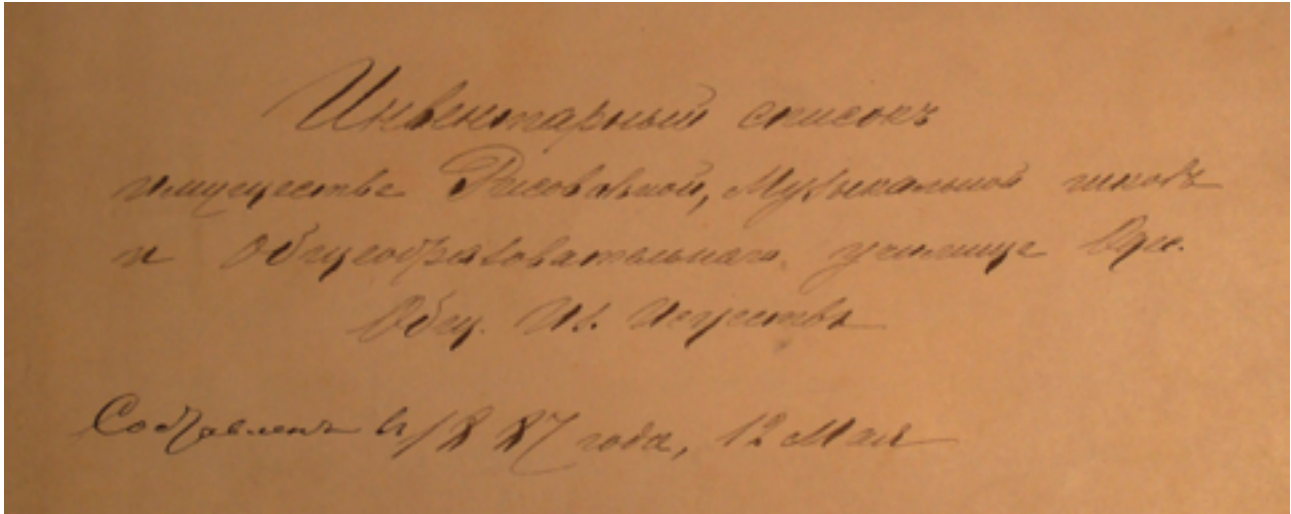 Инвентарный списокъ
имуществъ Рисовальной, Музыкальной школъ
и Общеобразовательнаго училища Одес.
Общ. Из. Искуствъ
Составленъ въ 1887 года, 12 Мая